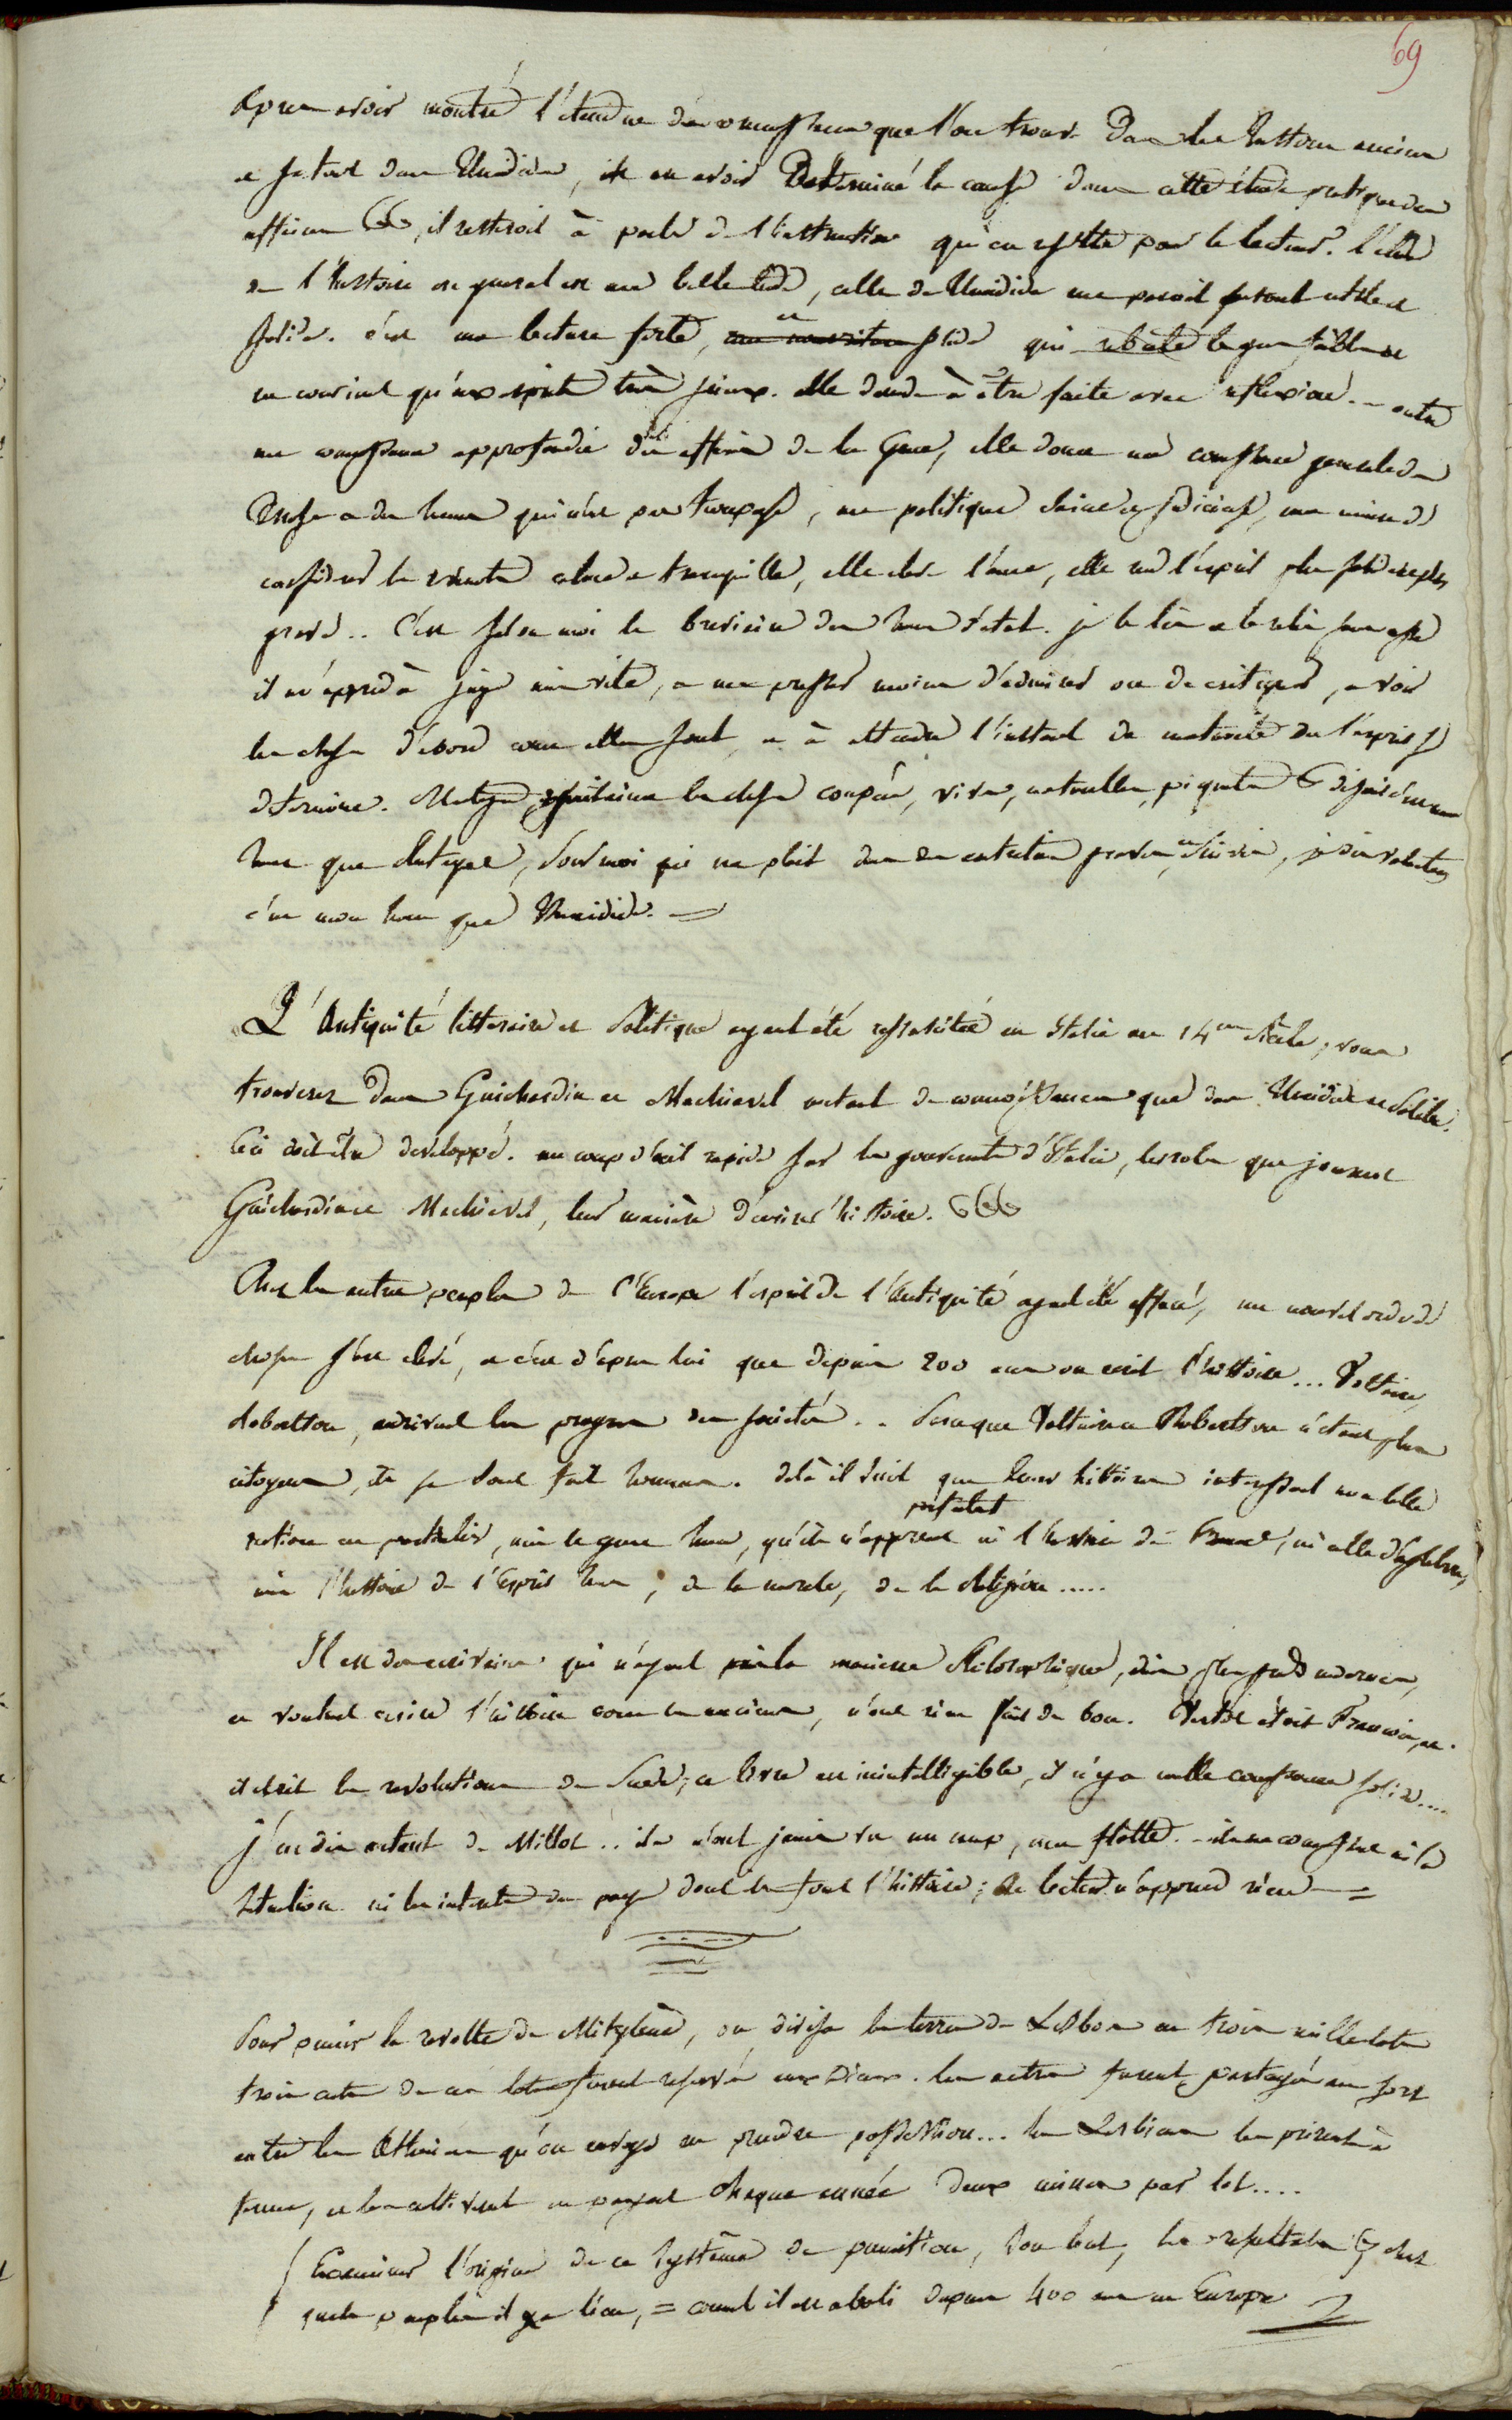 69
après avoir montré l'étendue des connoissances que l'on trouve dans les historiens anciens
et surtout dans Thucidide, et en avoir determiné la cause dans cette étude pratique des
affaires il resteroit à parler de l'instruction qui en resulte pour le lecteur. l'étude
de l'histoire en general est une belle étude, celle de Thucidide me paroit surtout utile et
solide. c'est une lecture forte, et solide qui rebute les gens foibles et
ne convient qu'aux esprits très serieux. elle demande à être faite avec reflexion. – outre
une connoissance approfondie des affaires de la Grece, elle donne une connoissance generale des
choses et des hommes qui n'est pas trompeuse, une politique saine et judicieuse, une maniere de
considerer les evenements calme et tranquille, elle eleve l'ame, elle rend l'esprit plus solide et plus
grave.. C'est selon moi le breviaire des hommes d'état. je le lis et le relis sans cesse
il m'apprend à juger moins vite, à me presser moins d'admirer ou de critiquer, à voir
les choses d'abord comme elles sont et à attendre l'instant de maturité de l'esprit
Montagne, qui aime les choses coupées, vives, naturelles, piquantes disait c'est mon
homme que Plutarque, Pour moi qui me plait dans des entretiens graves, et suivis, je dis volontiers
c'est mon homme que Thucidide. =
L'Antiquité litteraire et Politique ayant été ressuscitée en Italie au 14me siècle, vous
trouverez dans Guichardin et Machiavel autant de connoissances que dans Thucidide et Polibe.
Ceci doit être developpé. un coup d'œil rapide sur les gouvernements d'Italie, les roles que jouerent
Guichardin et Machiavel, leur manière d'écrire l'histoire.
Chez les autres peuples de l'Europe l'esprit de l'Antiquité ayant été effacé, un nouvel ordre de
choses s'est elevé, et c'est d'après lui que depuis 200 ans on ecrit l'histoire... Voltaire,
Robertson, ecrivent les progres des societés.. Parceque Voltaire et Robertson n'etant plus
citoyens, ils se sont fait hommes. delà il suit que leurs histoires interessent non telle
nation en particulier, mais le genre humain, qu'ils n'apprennent ni l'histoire de France, ni celle d'Angleterre,
mais l'histoire de l'Esprit humain, de la morale, de la Religion .....
Il est des ecrivains qui n'ayant pas la maniere Philosophique, des modernes,
et voulant ecrire l'histoire comme les anciens, n'ont rien fait de bon. Vertot étoit Francois, et
il ecrit les revolutions de Suede; ce livre est inintelligible, il n'y a nulle connoissance solide....
j'en dis autant de Millot .. ils n'ont jamais vu un camp, une flotte. – ils ne connoissent ni la
situation ni les interets des pays dont ils font l'histoire; le lecteur n'apprend rien =
Pour punir la revolte de Mitylène, on divisa les terres de Lesbos en trois mille lots
trois cents de ces lots furent reservés aux Dieux. les autres furent partagés au sort
entre les Atheniens qu'on envoya en prendre possession... les Lesbiens les prirent à
ferme, et les cultiverent en payant chaque année deux mines par lot....
Examiner l'origine de ce systême de punition, son but, les resultats chez
quels peuples il y a lieu, = comment il est aboli depuis 400 ans en Europe